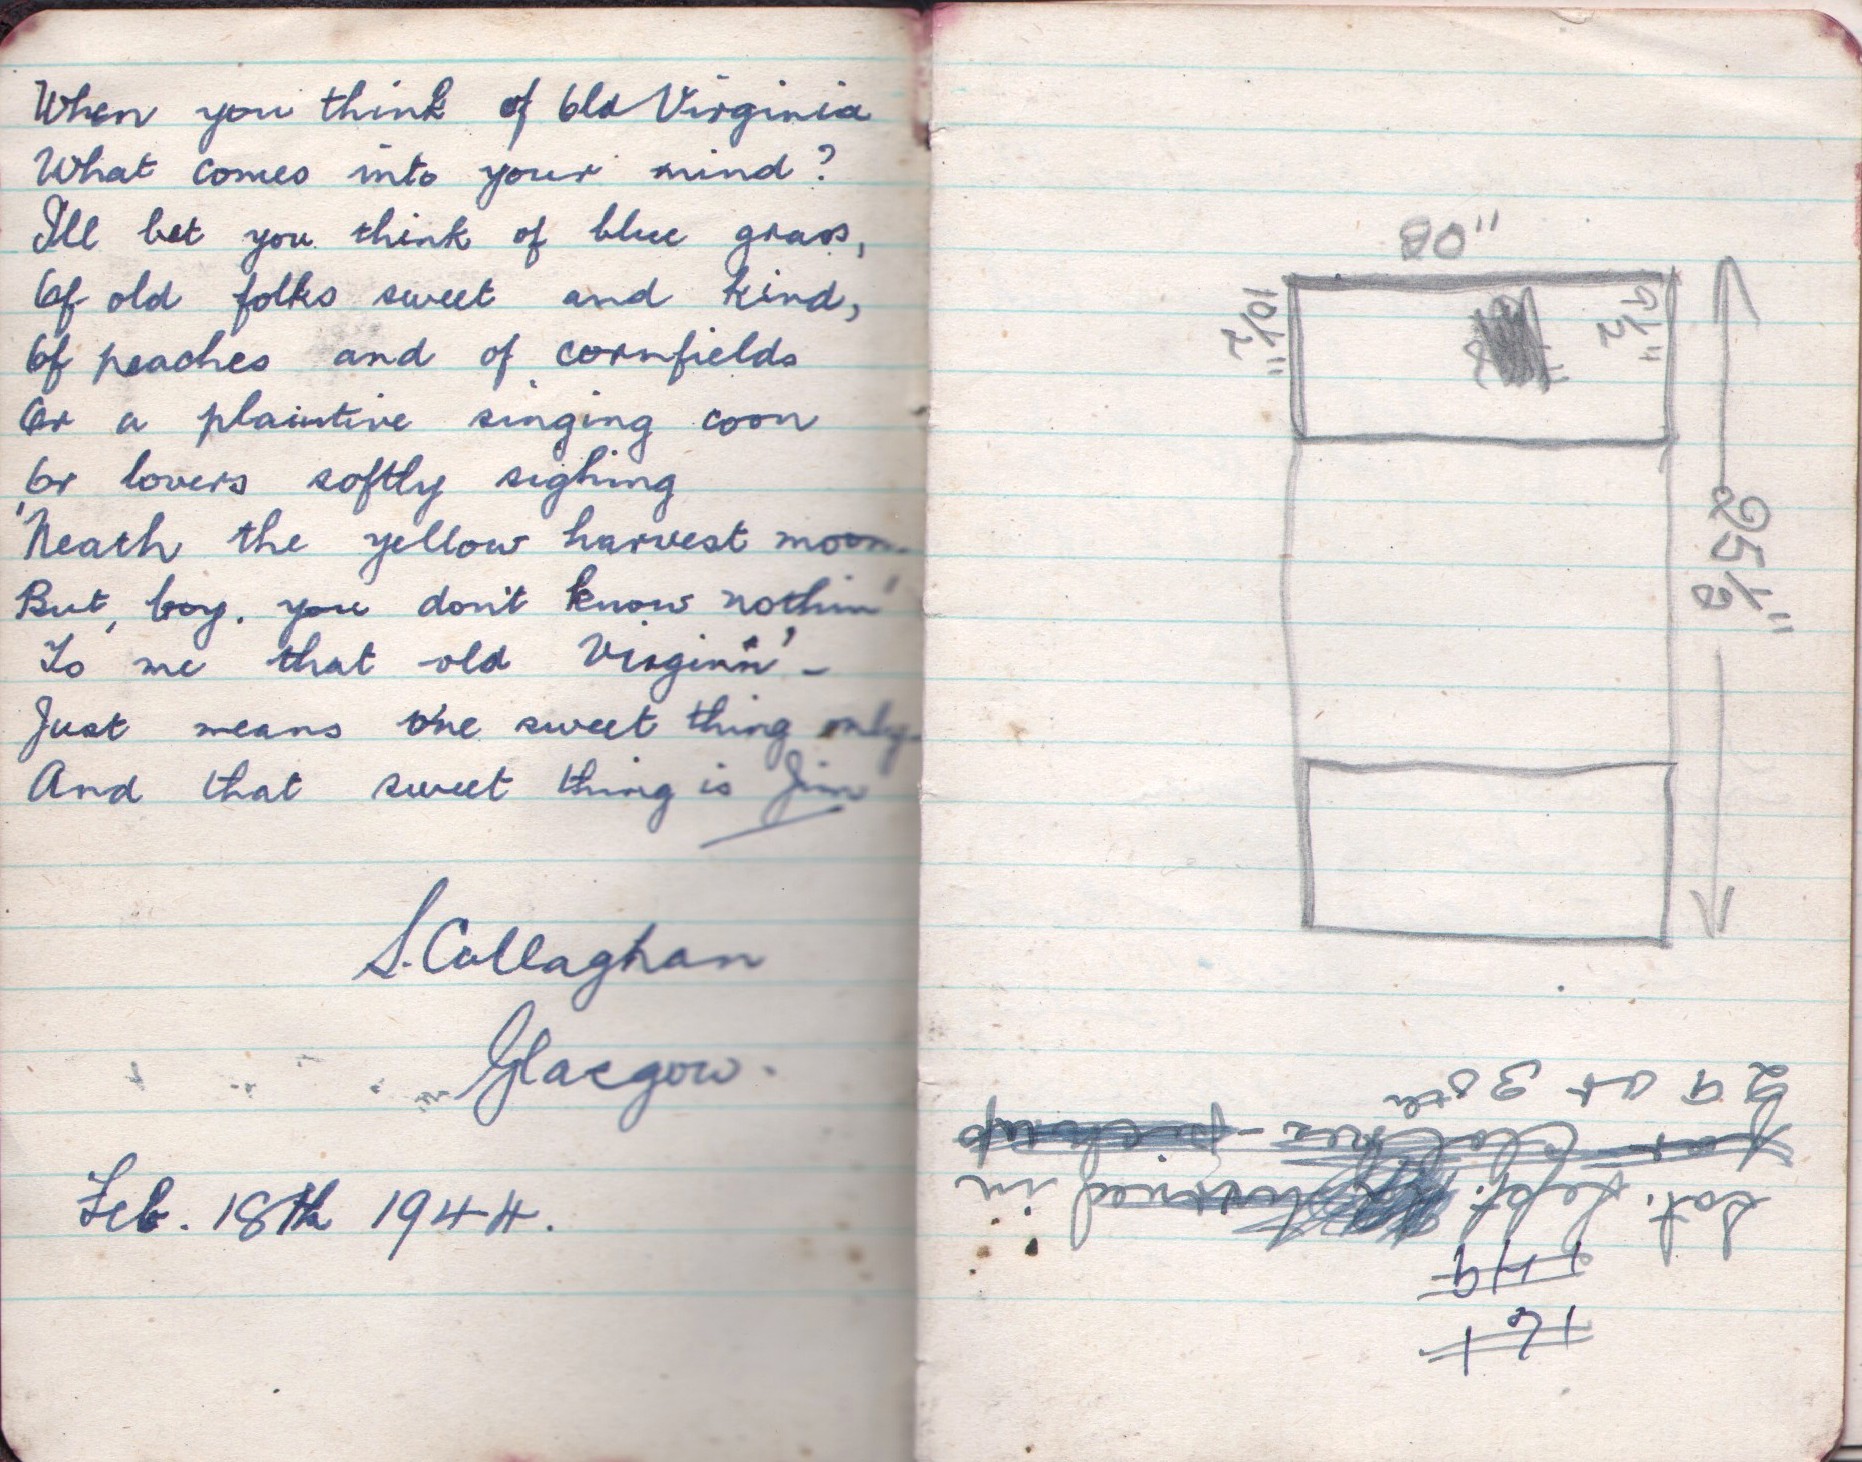 When you think of Old Virginia
What comes into your mind?
I'll bet you think of blue grass,
Of old folks sweet and kind,
Of peaches and of cornfields
Or a plaintive singing coon
Or lovers softly sighing
'Neath the yellow harvest moon.
But, boy, you don't know nothin'
To me that old Virgin'n' -
Just means one sweet thing only
And that sweet thing is Jim
S. Callaghan
Glasgow.
Feb. 18th 1944.
10½"
9½"
25½"
161
149
Sat. Sept. turned in
for Clothes - pickup
29 at 38th